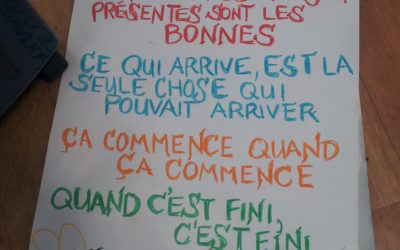 PRÉSENTES SONT LES
BONNES
CE QUI ARRIVE, EST LA
SEULE CHOSE QUI
POUVAIT ARRIVER
ÇA COMMENCE QUAND
ÇA COMMENCE
QUAND C'EST FINI,
C'EST FINI